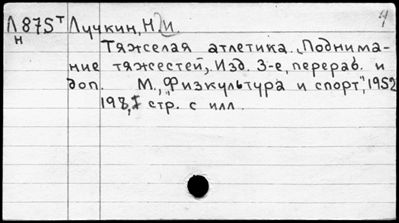 Л 875т Лучкин, Н. И. 4
н Тяжелая атлетика. „Поднима-
ние тяжестей„. Изд. 3-е, перераб. и
доп. М., „Физкультура и спорт", 1952
198, I стр. с илл.